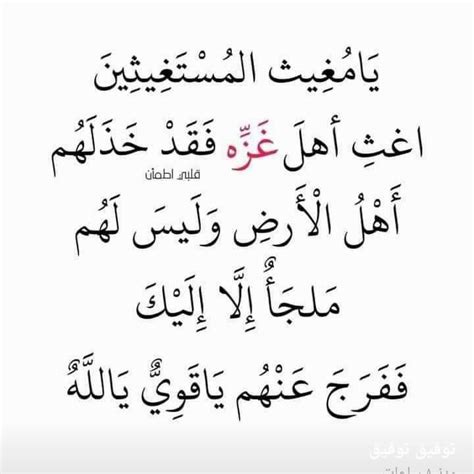 يَامُغِيث المُسْتَغِيثِينَ
اغثِ أهلَ غَزِّه فَقَدْ خَذَلَهُم
قلبي اطمان
أَهْلُ الْأَرضِ وَلَيسَ لَهُم
مَلجَأٌ إِلَّا إِلَيْكَ
فَفَرَجَ عَنْهُم يَاقَوِيٌّ يَاللَّهُ
توفيق توفيق